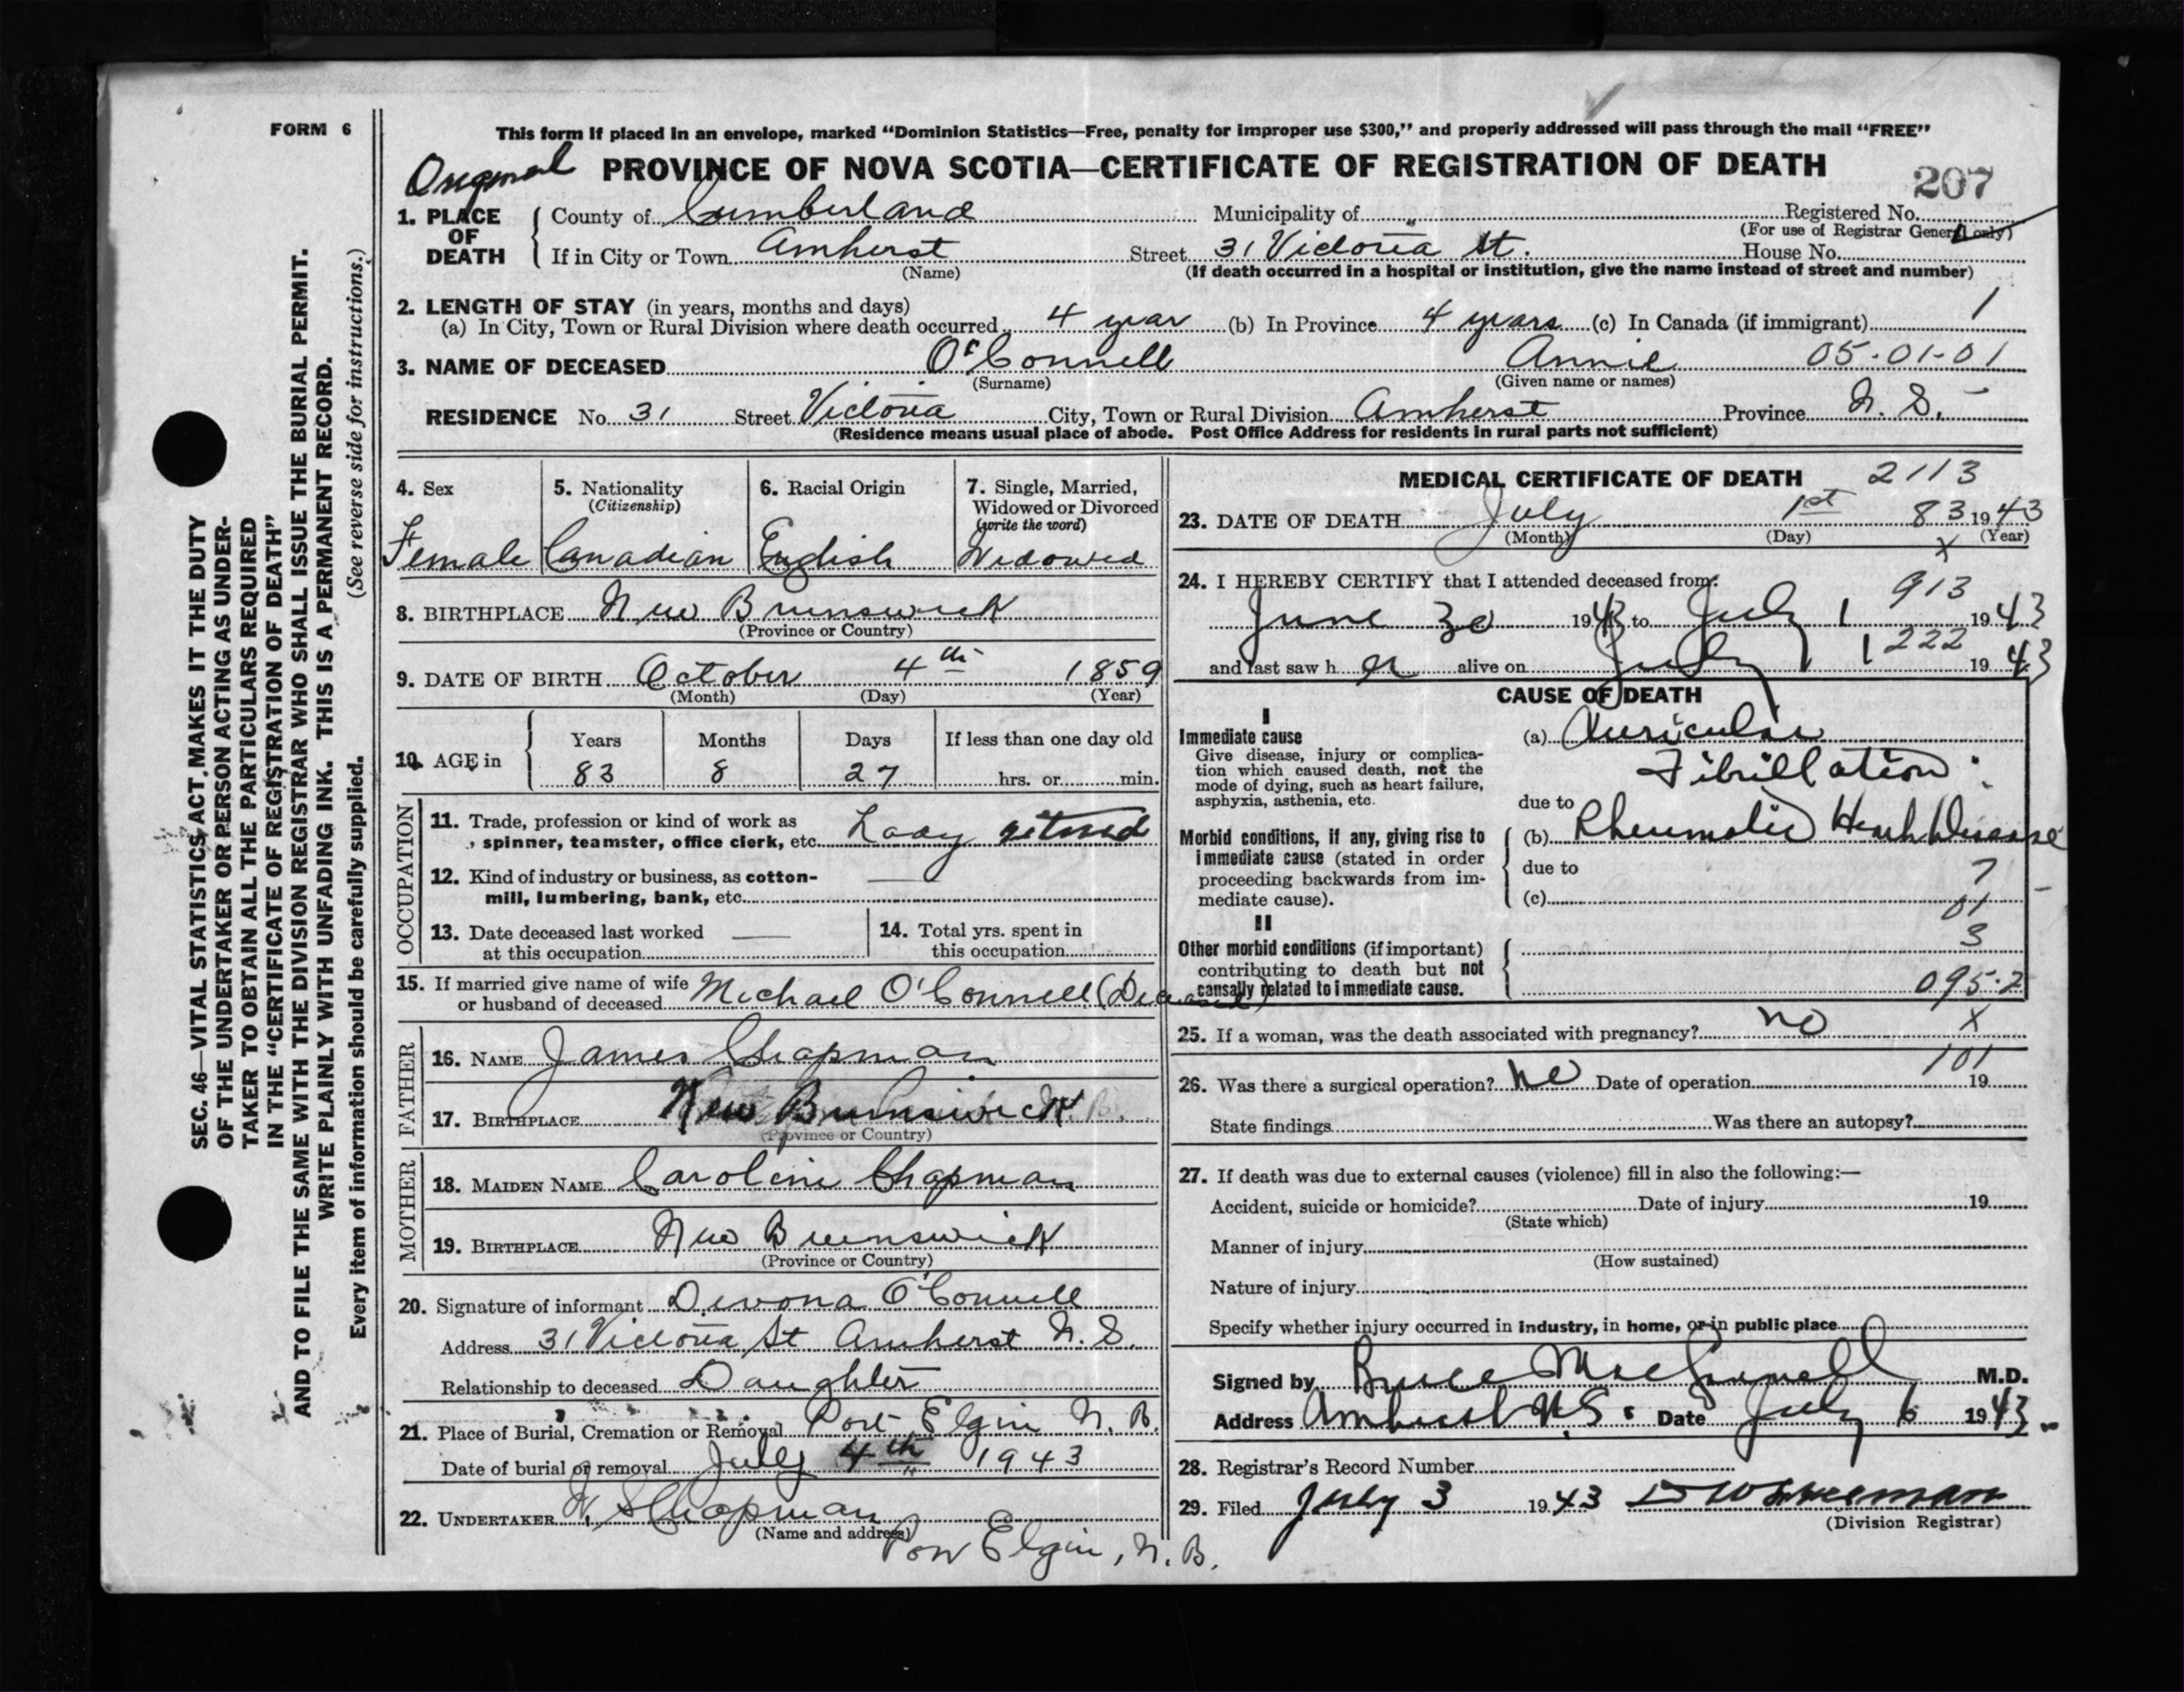 FORM 6
This form if placed in an envelope, marked “Dominion Statistics—Free, penalty for improper use $300,” and properly addressed will pass through the mail “FREE”
Original PROVINCE OF NOVA SCOTIA—CERTIFICATE OF REGISTRATION OF DEATH
207
1. PLACE OF DEATH
County of Cumberland Municipality of „ Registered No.
(For use of Registrar General only)
If in City or Town Amherst Street 31 Victoria St. House No.
(Name) (If death occurred in a hospital or institution, give the name instead of street and number)
2. LENGTH OF STAY (in years, months and days)
(a) In City, Town or Rural Division where death occurred 4 year (b) In Province 4 years (c) In Canada (if immigrant) 1
3. NAME OF DECEASED O'Connell Annie 05-01-01
(Surname) (Given name or names)
RESIDENCE No. 31 Street Victoria City, Town or Rural Division Amherst Province N. S.
(Residence means usual place of abode. Post Office Address for residents in rural parts not sufficient)
4. Sex
Female
5. Nationality
(Citizenship)
Canadian
6. Racial Origin
English
7. Single, Married,
Widowed or Divorced
(write the word)
Widowed
8. BIRTHPLACE New Brunswick
(Province or Country)
9. DATE OF BIRTH October 4th 1859
(Month) (Day) (Year)
10. AGE in
Years Months Days If less than one day old
83 8 27 hrs. or min.
OCCUPATION
11. Trade, profession or kind of work as
spinner, teamster, office clerk, etc. Lady retired
12. Kind of industry or business, as cotton-
mill, lumbering, bank, etc.
13. Date deceased last worked
at this occupation
14. Total yrs. spent in
this occupation
15. If married give name of wife
or husband of deceased Michael O'Connell (Deceased)
FATHER
16. NAME James Chapman
17. BIRTHPLACE New Brunswick
(Province or Country)
MOTHER
18. MAIDEN NAME Caroline Chapman
19. BIRTHPLACE New Brunswick
(Province or Country)
20. Signature of informant Devona O'Connell
Address 31 Victoria St Amherst N. S.
Relationship to deceased Daughter
21. Place of Burial, Cremation or Removal Port Elgin N. B.
Date of burial or removal July 4th 1943
22. UNDERTAKER Chapman
(Name and address)
Port Elgin, N. B.
MEDICAL CERTIFICATE OF DEATH 2113
23. DATE OF DEATH July 1st 83 1943
(Month) (Day) (Year)
x
24. I HEREBY CERTIFY that I attended deceased from:
913
June 30 1943 to July 1 1943
222
and last saw h er alive on July 1 1943
CAUSE OF DEATH
I
Immediate cause
Give disease, injury or complica-
tion which caused death, not the
mode of dying, such as heart failure,
asphyxia, asthenia, etc.
(a) Auricular
Fibrillation
due to
Morbid conditions, if any, giving rise to
immediate cause (stated in order
proceeding backwards from im-
mediate cause).
(b) Rheumatic Heart Disease
due to
7
(c)
01
II
Other morbid conditions (if important)
contributing to death but not
causally related to immediate cause.
3
095.2
25. If a woman, was the death associated with pregnancy? no x
101
26. Was there a surgical operation? no Date of operation 19
State findings Was there an autopsy?
27. If death was due to external causes (violence) fill in also the following:—
Accident, suicide or homicide? Date of injury 19
(State which)
Manner of injury
(How sustained)
Nature of injury
Specify whether injury occurred in industry, in home, or in public place
Signed by Bruce M.D.
Address Amherst N.S. Date July 6 1943
28. Registrar's Record Number
29. Filed July 3 1943
(Division Registrar)
SEC. 46—VITAL STATISTICS ACT, MAKES IT THE DUTY
OF THE UNDERTAKER OR PERSON ACTING AS UNDER-
TAKER TO OBTAIN ALL THE PARTICULARS REQUIRED
IN THE “CERTIFICATE OF REGISTRATION OF DEATH”
AND TO FILE THE SAME WITH THE DIVISION REGISTRAR WHO SHALL ISSUE THE BURIAL PERMIT.
WRITE PLAINLY WITH UNFADING INK. THIS IS A PERMANENT RECORD.
Every item of information should be carefully supplied. (See reverse side for instructions.)